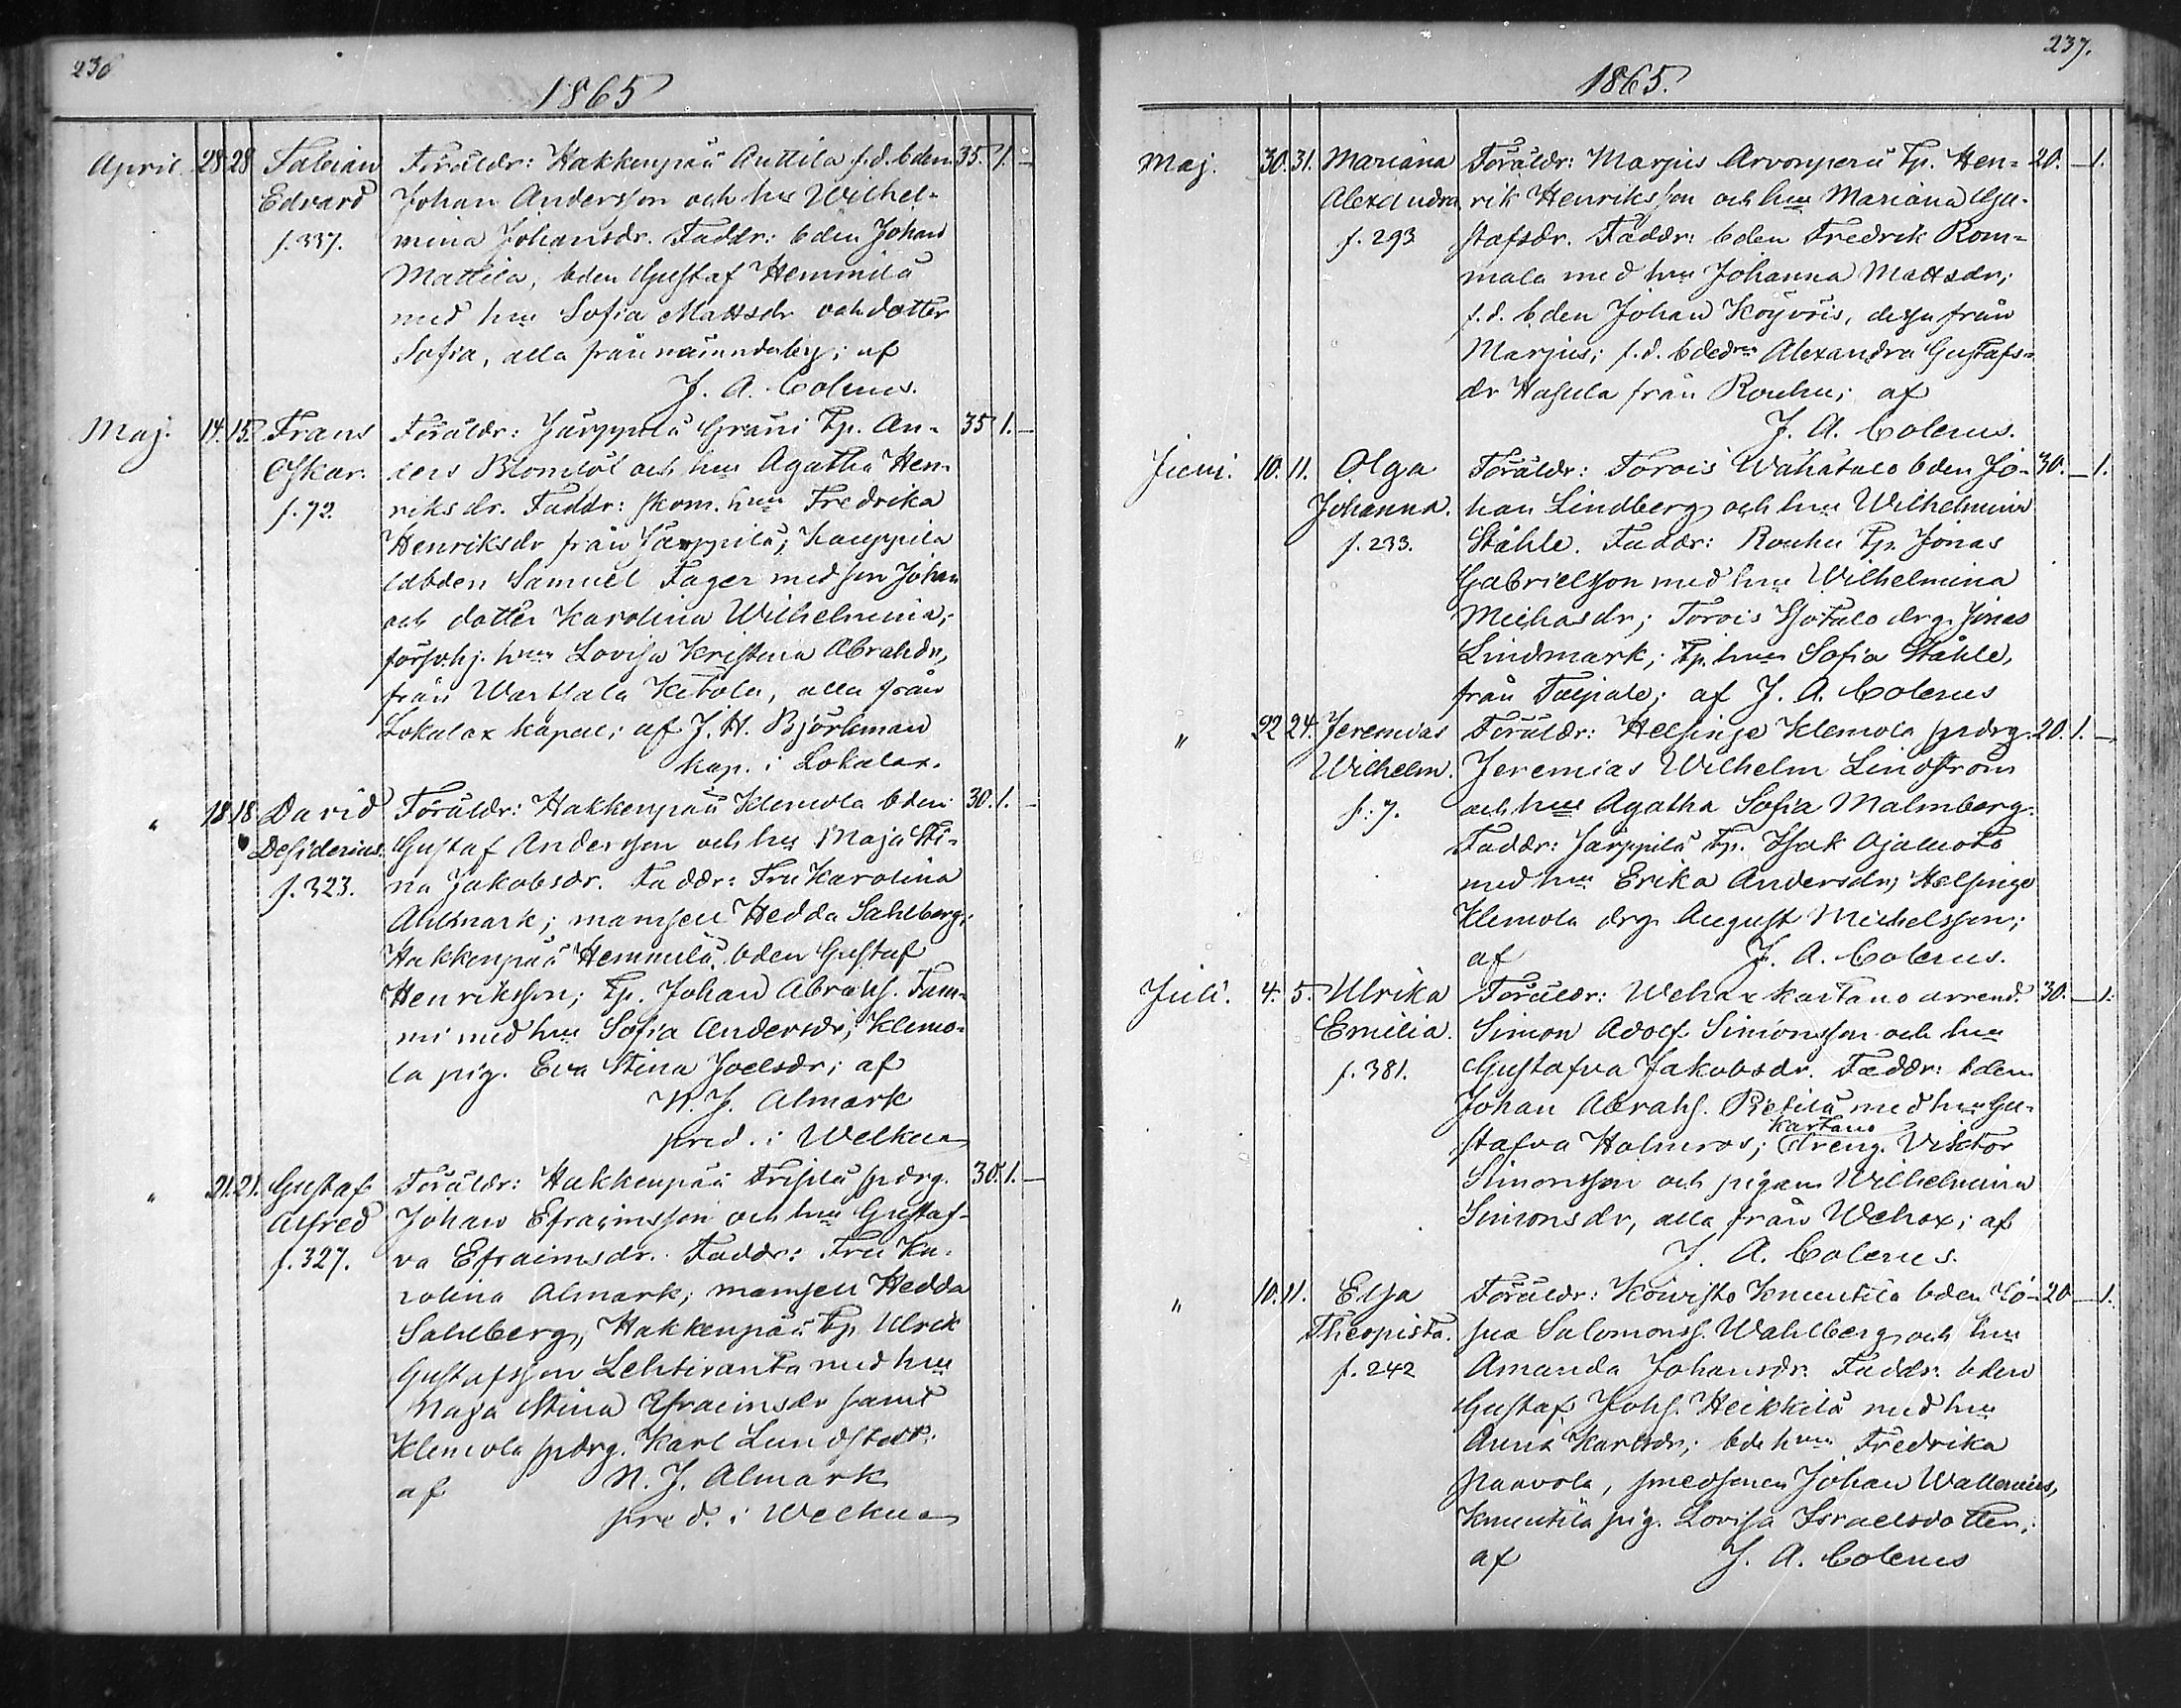 236
1865
April. 28 28 Fabian Föräldr: Hakkenpää Anttila f.d. bden 35. 1. —
Edvard Johan Andersson och hu Wilhel-
f. 337. mina Johansdr. Faddr: bden Johan
Mattila, bden Gustaf Hemmilä
med hu Sofia Mattsdr och dotter
Sofia, alla från nämnda by; af
J. A. Colerus.
Maj. 14. 15. Frans Föräldr: Järppilä Gräni Tp. An- 35 1. —
Oskar. ders Blomlöf och hu Agatha Hen-
f. 72. riksdr. Faddr: skom. hu Fredrika
Henriksdr från Järppilä; Kauppila
ldbden Samuel Fager med son Johan
och dotter Karolina Wilhelmina;
hu Lovisa Kristina Abrahdr,
från Warhala Ketola, alla från
Lokalax kapell; af J. H. Björkman
kap. i Lokalax.
" 18 18 David Föräldr: Hakkenpää Klemola bden 30. 1. —
Desiderius. Gustaf Andersson och hu Maja Sti-
f. 323. na Jakobsdr. Faddr: Fru Karolina
Ahlmark; mamsell Hedda Sahlberg;
Hakkenpää Hemmilä bden Gustaf
Henriksson; Tp. Johan Abrahs. Tam-
mi med hu Sofia Andersdr; Klemo-
la pig. Eva Stina Joelsdr; af
N. J. Almark
pred. i Welkua
" 21. 21. Gustaf Föräldr: Hakkenpää Frisilä spdrg. 30. 1. —
Alfred Johan Efraimsson och hu Gustaf-
f. 327. va Efraimsdr. Faddr: Fru Ka-
rolina Almark; mamsell Hedda
Sahlberg, Hakkenpää Tp. Ulrik
Gustafsson Lehtiranta med hu
Maja Stina Efraimsdr samt
Klemola spdrg. Karl Lundstedt.
af N. J. Almark
pred. i Welkua
237.
1865.
Maj. 30. 31. Mariana Föräldr: Marjus Arvonperä Tp. Hen- 20. — 1.
Alexandra rik Henriksson och hu Mariana Gu-
f. 293 stafsdr. Faddr: bden Fredrik Rom-
mala med hu Johanna Mattsdr;
f.d. bden Johan Köyvris, dessa från
Marjus; f.d. bdedrn Alexandra Gustafs-
dr Hasula från Rouhu; af
J. A. Colerus.
Juni. 10. 11. Olga Föräldr: Torois Wähätalo bden Jo- 30. — 1.
Johanna. han Lindberg och hu Wilhelmina
f. 233. Ståhle. Faddr: Rouhu Tp. Jonas
Gabrielsson med hu Wilhelmina
Michasdr; Torois Isotalo drg. Jonas
Lindmark; Tp. hu Sofia Ståhle,
från Taipale; af J. A. Colerus
" 22 24. Jeremias Föräldr: Helsinge Klemola spdrg. 20. 1. —
Wilhelm. Jeremias Wilhelm Lindström
f. 7. och hu Agatha Sofia Malmberg.
Faddr: Järppilä Tp. Isak Ojaluoto
med hu Erika Andersdr; Helsinge
Klemola drg. August Michelsson;
af J. A. Colerus.
Juli. 4. 5. Ulrika Föräldr: Wehax Kartano arrend. 30. — 1.
Emilia. Simon Adolf Simonsson och hu
f. 381. Gustafva Jakobsdr. Faddr: bden
Johan Abrahs. Pietilä med hu Gu-
stafva Holmros; Kartano dreng. Viktor
Simonsson och pigan Wilhelmina
Simonsdr, alla från Wehax; af
J. A. Colerus.
" 10. 11. Elsa Föräldr: Koivisto Knuutila bden Jo- 20 — 1.
Theopista. sua Salomonss. Wahlberg och hu
f. 242 Amanda Johansdr. Faddr: bden
Gustaf Johs. Heikkilä med hu
Anna Karlsdr; bde hu Fredrika
Naavola, smedsonen Johan Wallenius,
Knuutila pig. Lovisa Israelsdotter;
af J. A. Colerus